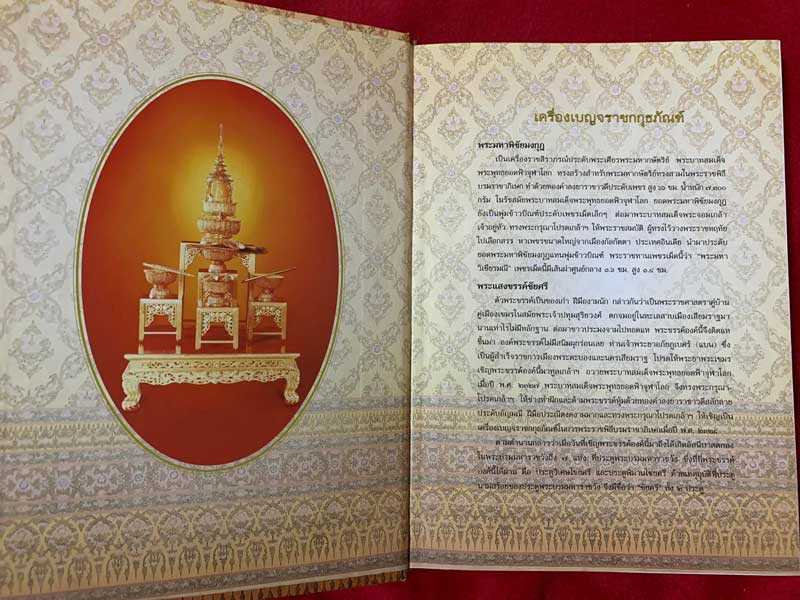 เครื่องเบญจราชกกุธภัณฑ์
พระมหาพิชัยมงกุฎ
เป็นเครื่องราชสิราภรณ์ประดับพระเศียรพระมหากษัตริย์ พระบาทสมเด็จ
พระพุทธยอดฟ้าจุฬาโลก ทรงสร้างสำหรับพระมหากษัตริย์ทรงสวมในพระราชพิธี
บรมราชาภิเษก ทำด้วยทองคำลงยาราชาวดีประดับเพชร สูง ๖๖ ซม. น้ำหนัก ๗,๓๐๐
กรัม ในรัชสมัยพระบาทสมเด็จพระพุทธยอดฟ้าจุฬาโลก ยอดพระมหาพิชัยมงกุฎ
ยังเป็นพุ่มข้าวบิณฑ์ประดับเพชรเม็ดเล็กๆ ต่อมาพระบาทสมเด็จพระจอมเกล้า
เจ้าอยู่หัว ทรงพระกรุณาโปรดเกล้าฯ ให้พระราชสมบัติ ผู้ทรงไว้วางพระราชหฤทัย
ไปเลือกสรร หาเพชรขนาดใหญ่จากเมืองกัลกัตตา ประเทศอินเดีย นำมาประดับ
ยอดพระมหาพิชัยมงกุฎแทนพุ่มข้าวบิณฑ์ พระราชทานเพชรเม็ดนี้ว่า "พระมหา
วิเชียรมณี" เพชรเม็ดนี้มีเส้นผ่าศูนย์กลาง ๑.๖ ซม. สูง ๑.๔ ซม.
พระแสงขรรค์ชัยศรี
ตัวพระขรรค์เป็นของเก่า ฝีมืองามนัก กล่าวกันว่าเป็นพระราชศาสตราคู่บ้าน
คู่เมืองเขมรในสมัยพระเจ้าปทุมสุริยวงศ์ ตกจมอยู่ในทะเลสาบเมืองเสียมราฐมา
นานเท่าไรไม่มีหลักฐาน ต่อมาชาวประมงจามไปทอดแห พระขรรค์องค์นี้จึงติดแห
ขึ้นมา องค์พระขรรค์ไม่มีสนิมผุกร่อนเลย ท่านเจ้าพระยาอภัยภูเบศร์ (แบน) ซึ่ง
เป็นผู้สำเร็จราชการเมืองพระตะบองและนครเสียมราฐ โปรดให้พระยาพระเขมร
เชิญพระขรรค์องค์นี้มาทูลเกล้าฯ ถวายพระบาทสมเด็จพระพุทธยอดฟ้าจุฬาโลก
เมื่อปี พ.ศ. ๒๓๒๗ พระบาทสมเด็จพระพุทธยอดฟ้าจุฬาโลก จึงทรงพระกรุณา
โปรดเกล้าฯ ให้ช่างทำฝักและด้ามพระขรรค์หุ้มด้วยทองคำลงยาราชาวดีสลักลาย
ประดับอัญมณี ฝีมือประณีตงดงามมากและทรงพระกรุณาโปรดเกล้าฯ ให้เชิญเป็น
เครื่องเบญจราชกกุธภัณฑ์ในการพระราชพิธีบรมราชาภิเษกเมื่อปี พ.ศ. ๒๓๒๘
ตามตำนานกล่าวว่าเมื่อวันที่เชิญพระขรรค์องค์นี้มาถึงได้เกิดอสนีบาตตกลง
ในพระบรมมหาราชวังถึง ๗ แห่ง ที่ประตูพระบรมมหาราชวัง ซึ่งที่ที่พระขรรค์
องค์นี้ได้ผ่าน คือ ประตูวิเศษไชยศรี และประตูพิมานไชยศรี ด้วยเหตุอุบัติที่ประตู
นามสร้อยของประตูพระบรมมหาราชวัง จึงมีชื่อว่า "ชัยศรี" ทั้ง ๒ ประตู